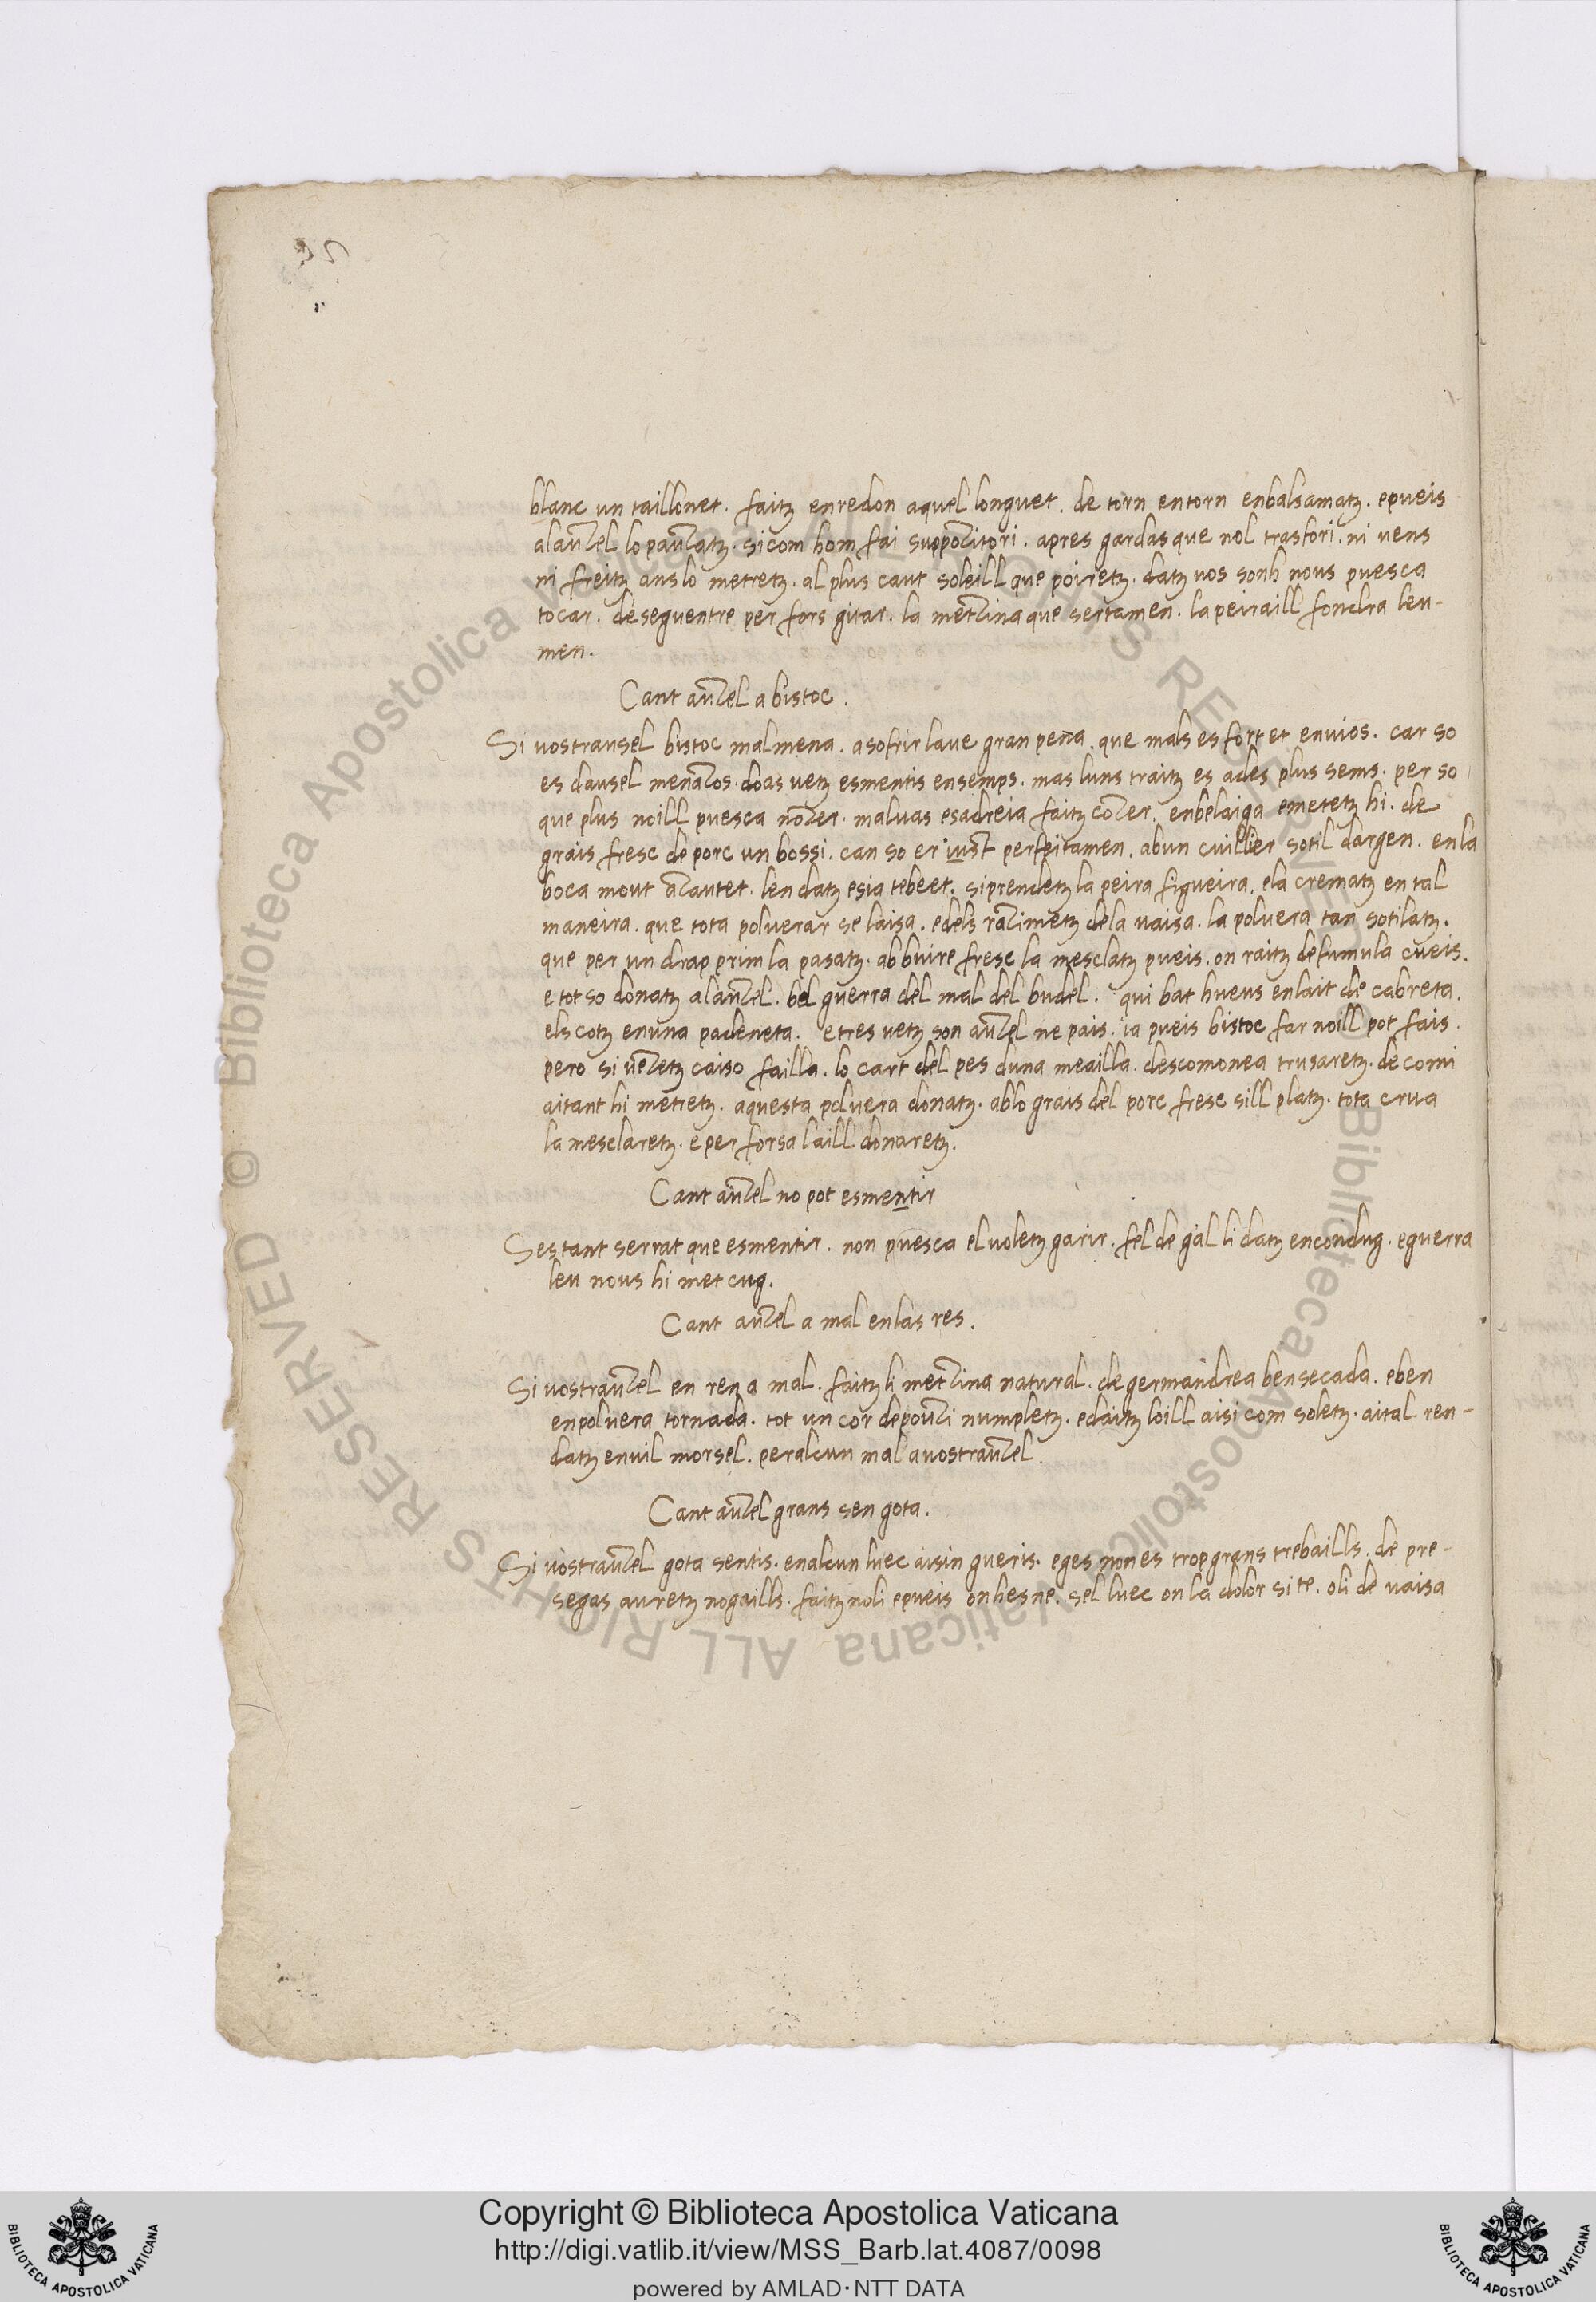 blanc un taillonet. faitz enredon aquel longuet. de torn entorn enbalsamatz. epueis
alauzel lopauzatz. sicom hom fai suppozitori. apres gardasque nol trasfori. ni vens
ni freitz anslo metretz. alplus caut soleill que poiretz. datz vos sonh nous puesca
tocar. deseguentre per fors gitar. la metzinaque sertamen. lapeiraill fondra leu-
men.
Cant auzel a bistoc.
Si vostrausel bistoc malmena. asofrir laue gran pena. que mals es fort et enuios. car so
es dausel menazos. doas vetz esmentis ensemps. mas luns traitz es ades plus sems. per so
que plus noill puesca nozer. malvas esadreia faitz cozer. enbelaiga emetetz hi. de
grais fresc de porc un bossi. can so er iust perfeitamen. abun cuillier sotil dargen. enla
boca mout azautet. lendatz esia tebeet. siprendetz la peira figueira. ela crematz en tal
maneira. que tota polverar se laisa. edels razimetz dela vaisa. la polvera tan sotilatz.
que per un drap prim la pasatz. abbuire fresc la mesclatz pueis. on raitz defumula cueis.
e tot so donatz alauzel. bel guerra del mal del budel. qui bat hueus enlait de cabreta.
els cotz enuna padeneta. e tres vetz son auzel ne pais. ia pueis bistoc far noill pot fais.
pero si vezetz caiso failla. lo cart del pes duna meailla. descomonea trusaretz. de comi
aitant hi metretz. aquesta polvera donatz. ablo grais del porc fresc sill platz. tota crua
la mesclaretz. e per forsa laill donaretz.
Cant auzel no pot esmentir
Sestant serrat que esmentir. non puesca el voletz garir. fel de gal li datz encondug. eguerra
leu nous hi met cug.
Cant auzel a mal enlas res.
Si vostrauzel en ren a mal. faitz li metzina natural. de germandrea bensecada. eben
enpolvera tornada. tot un cor depouzi numpletz. edaitz loill aisi com soletz. aital ren-
datz envil morsel. peralcun mal avostrauzel.
Cant auzel grans sen gota.
Si vostrauzel gota sentis. enalcun luec aisin gueris. eges nones tropgrans trebaills. de pre-
segas auretz nogaills. faitz noli epueis onhesne. sel luec on la dolor si te. oli de vaisa
Copyright © Biblioteca Apostolica Vaticana
http://digi.vatlib.it/view/MSS_Barb.lat.4087/0098
powered by AMLAD·NTT DATA